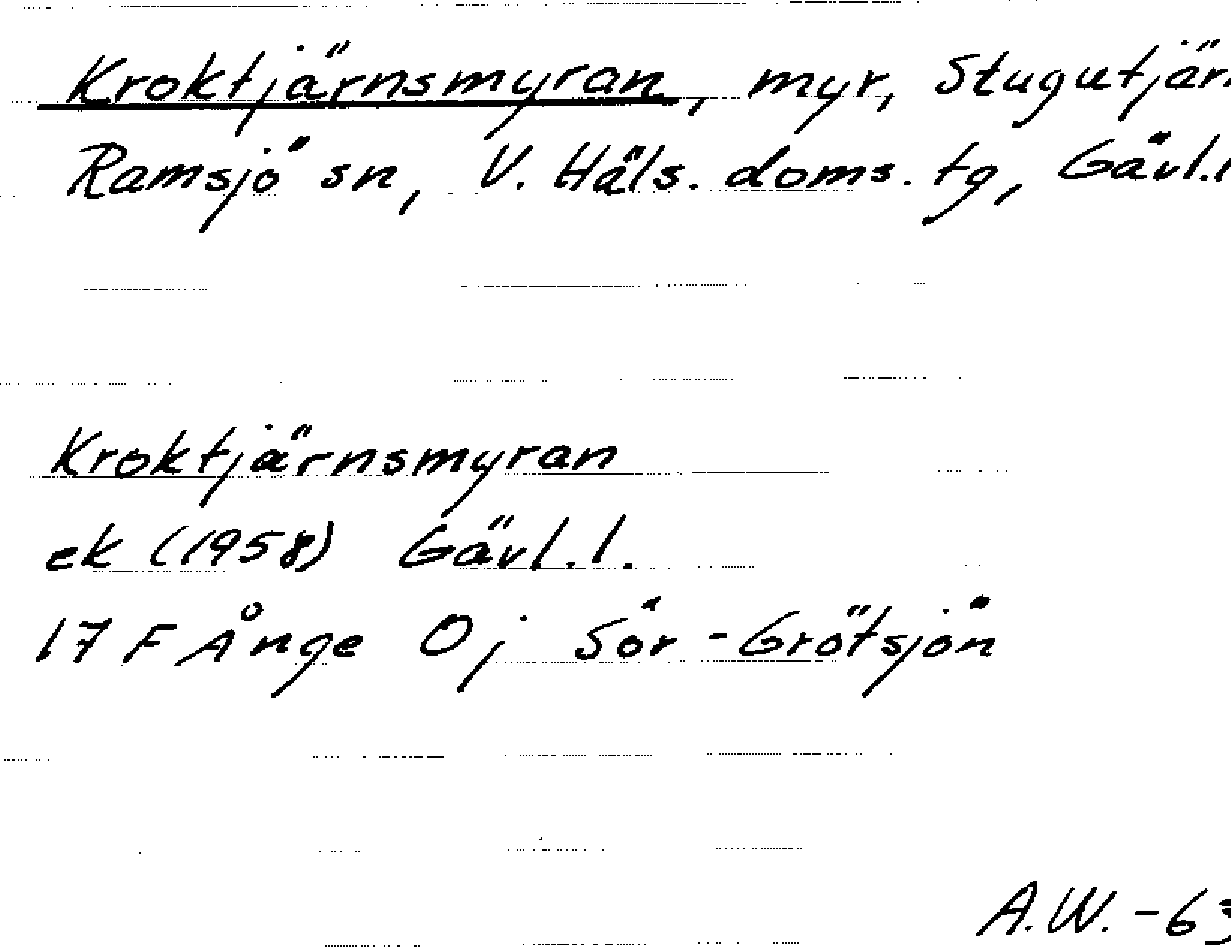 Kroktjärnsmyran, myr, Stugutjärn
Ramsjö sn, V. Häls. doms. tg, Gävl.l
Kroktjärnsmyran
ek (1958) Gävl.l.
17 F Ånge Oj Sör-Grötsjön
A.W. -63